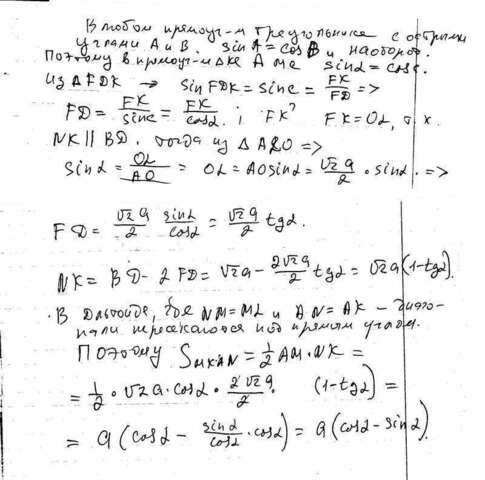 В любом прямоуг-м треугольнике с острыми
углами A и B. sinA = cosB и наоборот.
Поэтому в прямоуг-м Δке AMC sinα = cosC.
Из ΔFDK → sin FDK = sinC = FK/FD =>
FD = FK/sinC = FK/cosα ; FK? FK = OL, т.к.
NK || BD, тогда из ΔALO =>
sinα = OL/AO = OL = AO sinα = √2 a/2 · sinα =>
FD = √2 a/2 sinα/cosα = √2 a/2 tgα.
NK = BD - 2FD = √2 a - 2√2 a/2 tgα = √2 a (1-tgα).
В дельтоиде, где NM = ML и AN = AK - диаго-
нали пересекаются под прямом углом.
Поэтому S MKAN = 1/2 AM · NK =
= 1/2 · √2 a · cosα · 2√2 a/2 (1-tgα) =
= a (cosα - sinα/cosα · cosα) = a (cosα - sinα).